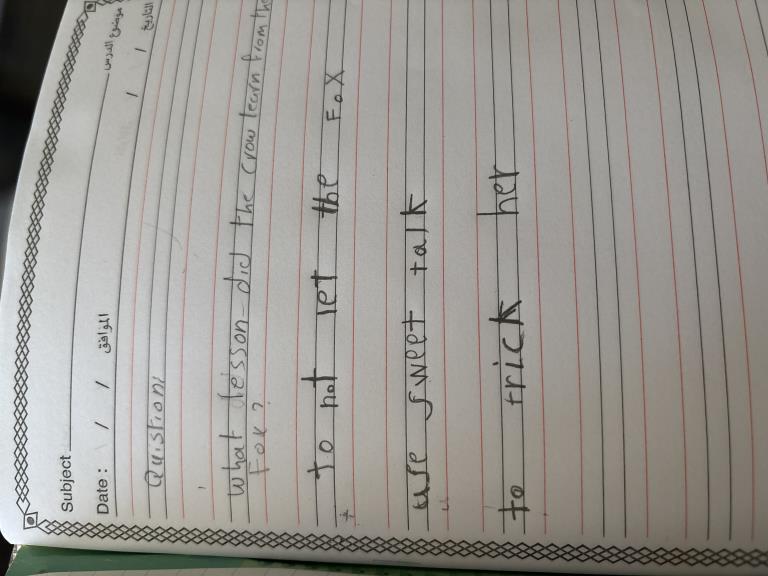 Subject موضوع الدرس
Date : / / الموافق / / التاريخ
Quistion:
What leisson did the crow learn from the
Fox?
To not let the Fox
use sweet talk
to trick her